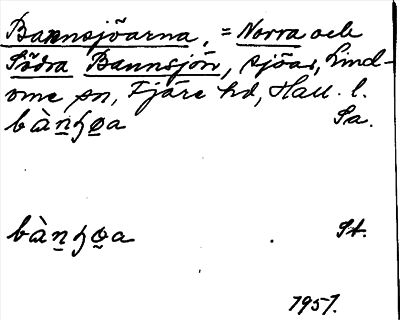 Bannsjöarna, = Norra och
Södra Bannsjön, sjöar, Lind-
ome sn, Fjäre hd, Hall. l.
Sa.
St.
1957.